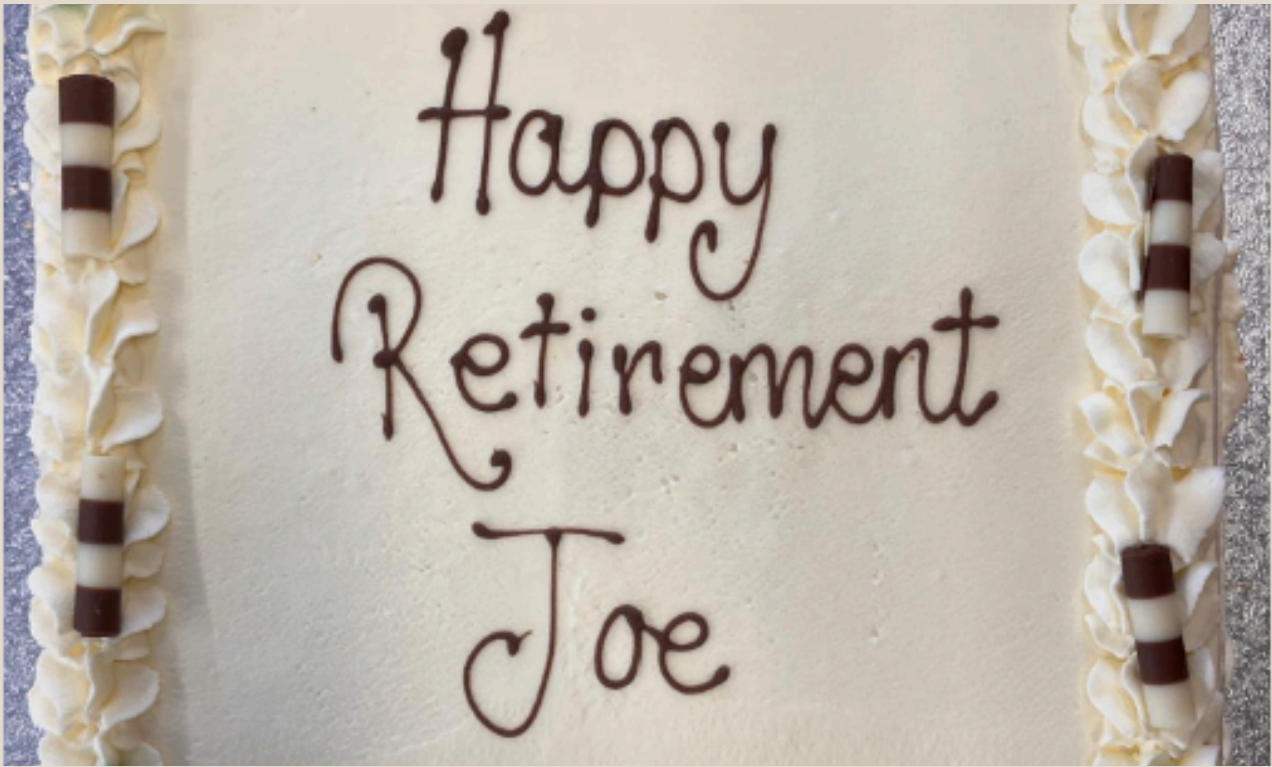 Happy
Retirement
Joe